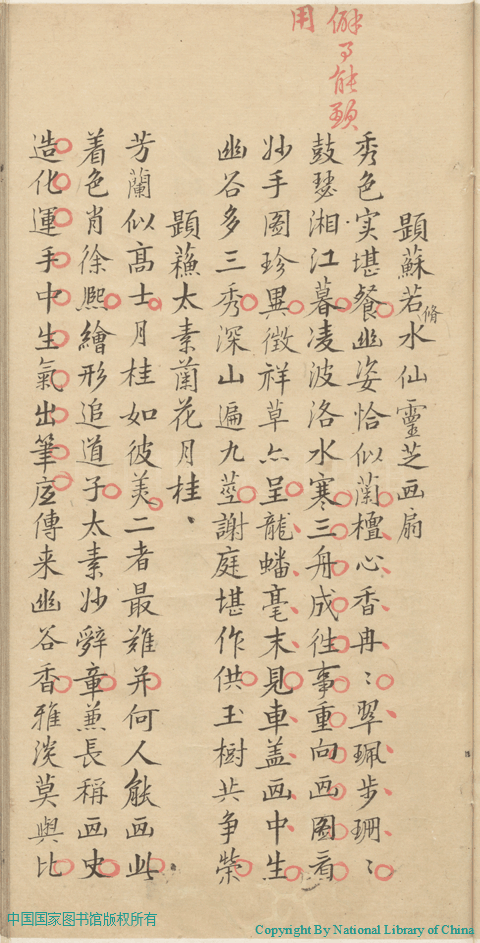 僻能
用
題蘇若脩水仙靈芝画扇
秀色实堪餐幽姿恰似蘭檀心香冉〻翠珮步珊〻
鼓瑟湘江暮凌波洛水寒三舟成往事重向画圖看
妙手圖珍異徵祥草亦呈龍蟠毫末見車盖画中生
幽谷多三秀深山遍九莖謝庭堪作供玉樹共争榮
題蘓太素蘭花月桂
芳蘭似高士月桂如彼美二者最難并何人能画此
着色肖徐熙繪形追道子太素妙辭章兼長稱画史
造化運手中生氣出筆底傳来幽谷香雅淡莫與比
中国国家图书馆版权所有
Copyright By National Library of China